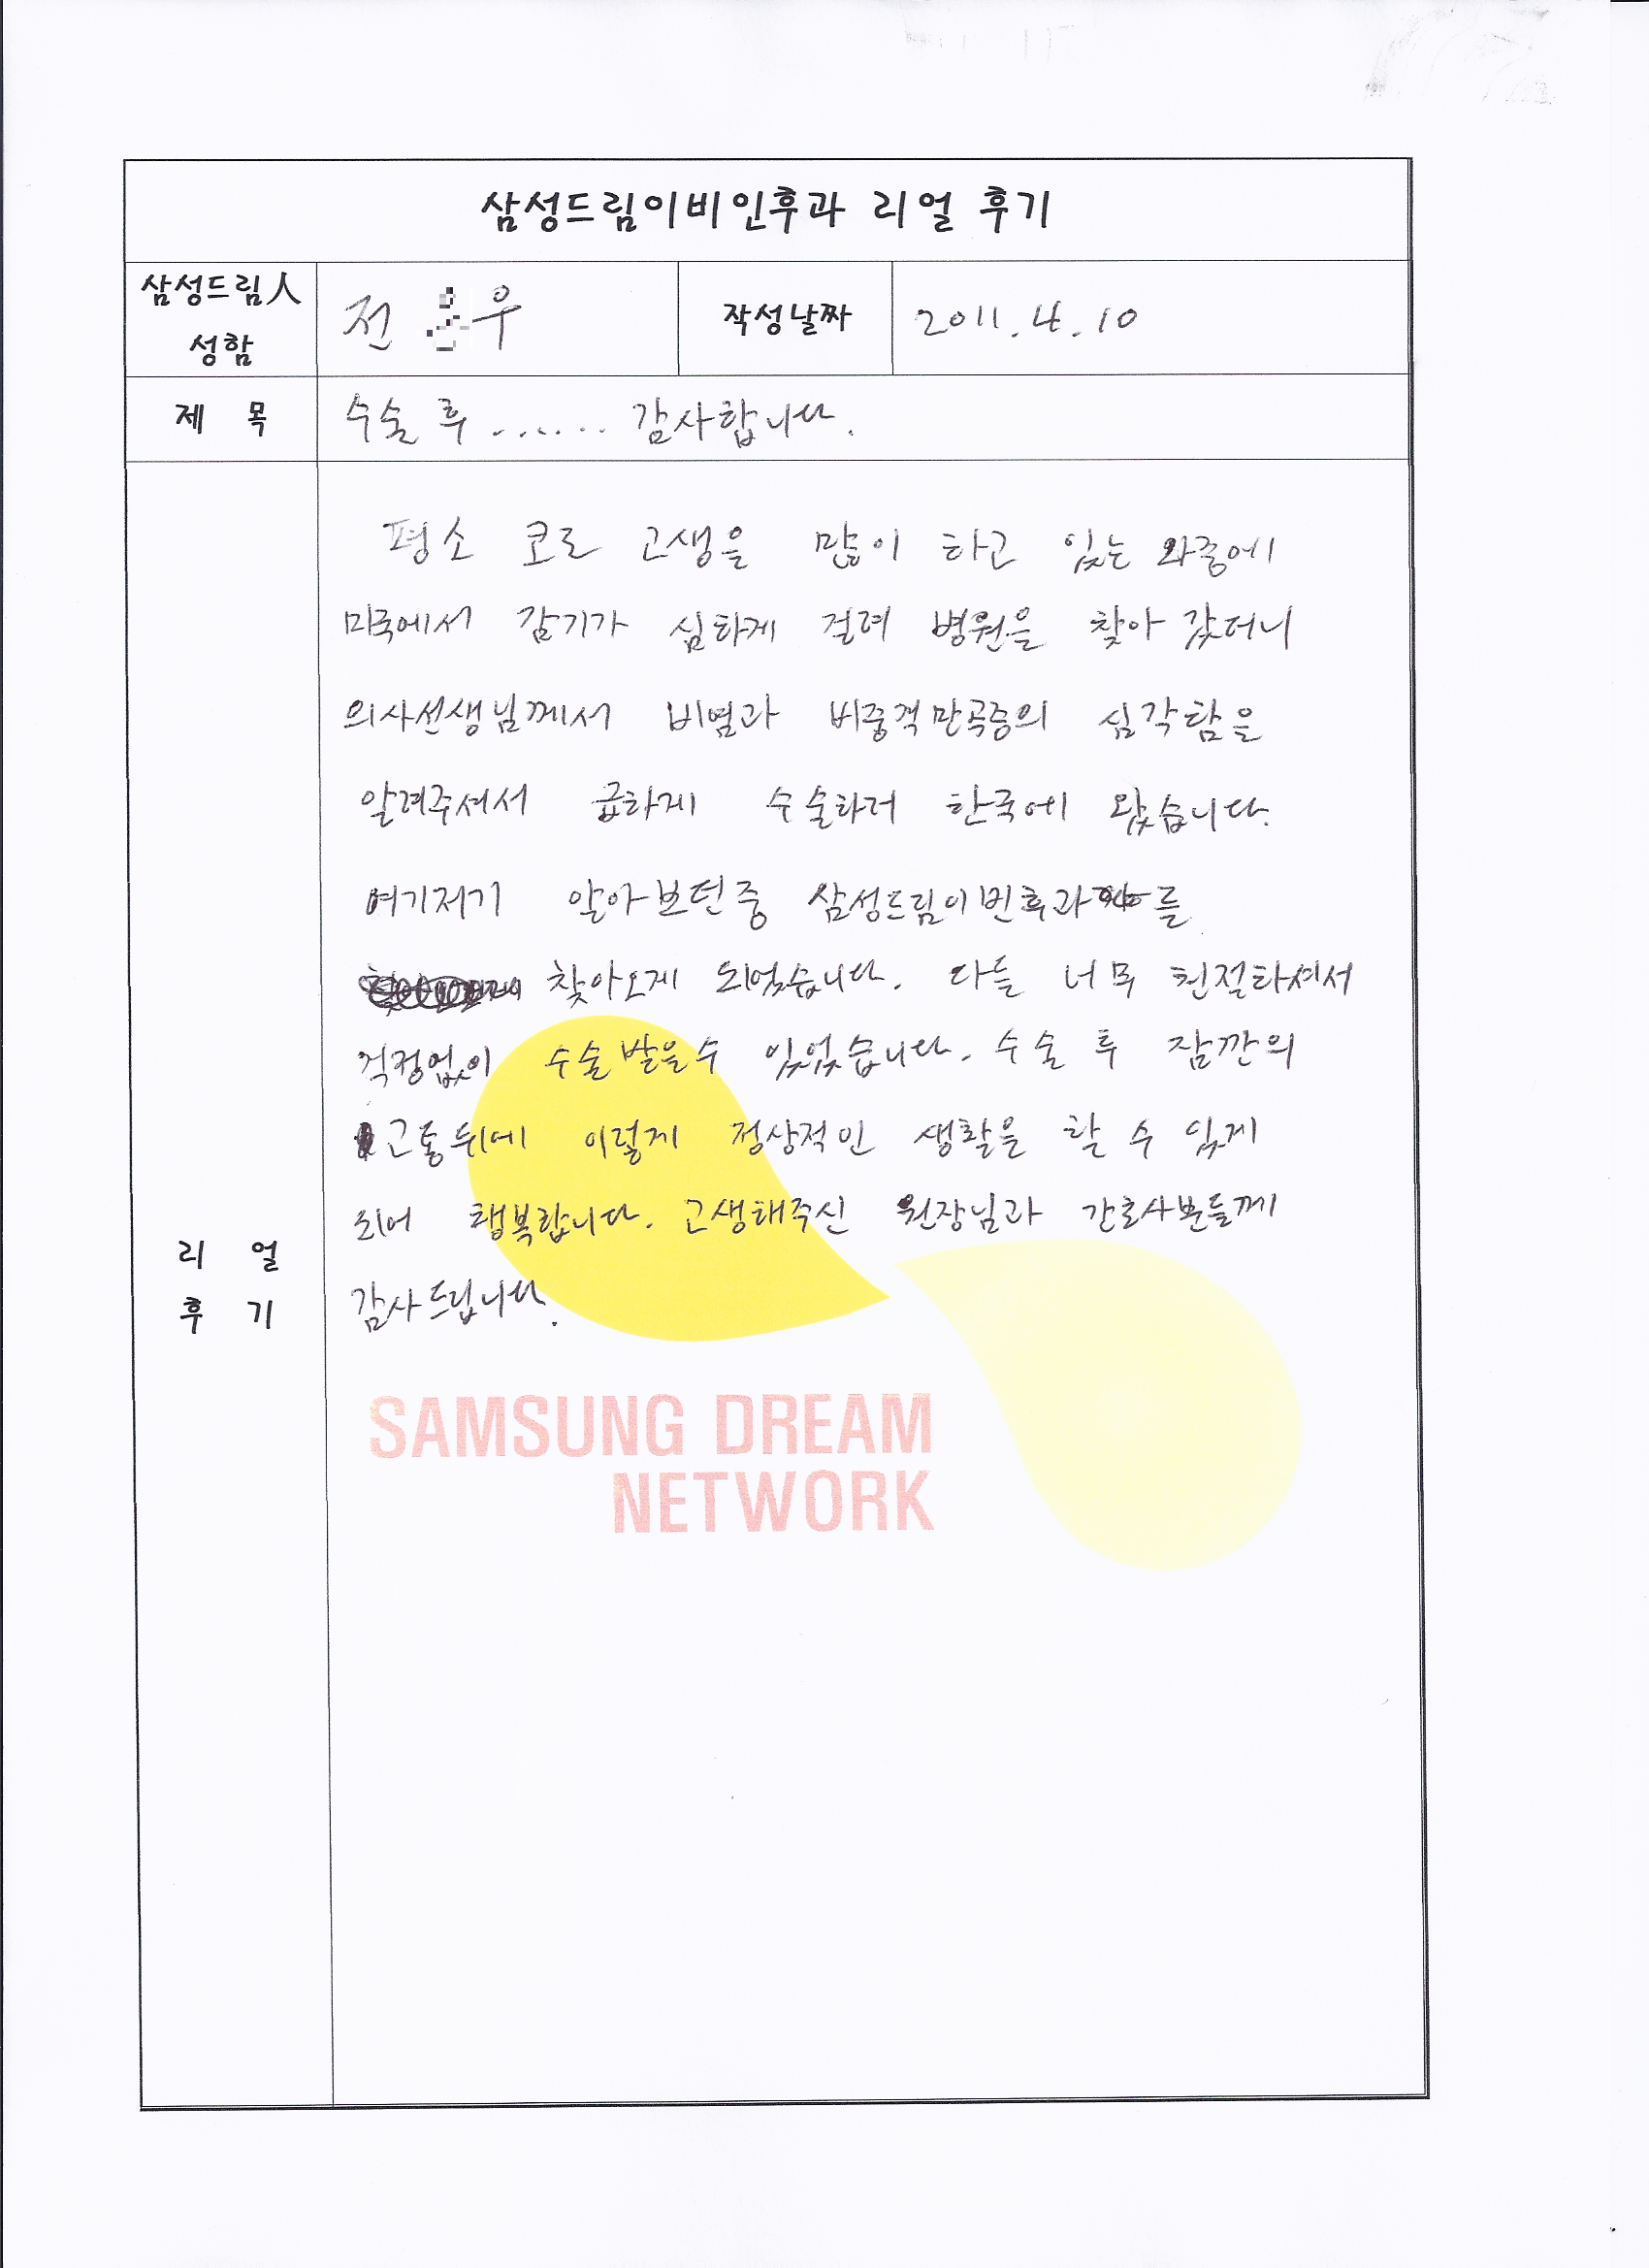 삼성드림이비인후과 리얼 후기
삼성드림人
성함
전 우
작성날짜
2011.4.10
제 목
수술 후 ...... 감사합니다.
평소 코로 고생을 많이 하고 있는 와중에
미국에서 감기가 심하게 걸려 병원을 찾아 갔더니
의사선생님께서 비염과 비중격만곡증의 심각함을
알려주셔서 급하게 수술하러 한국에 왔습니다.
여기저기 알아보던중 삼성드림이빈후과를
찾아오게 되었습니다. 다들 너무 친절하셔서
걱정없이 수술받을수 있었습니다. 수술 후 잠깐의
고통뒤에 이렇게 정상적인 생활을 할 수 있게
되어 행복합니다. 고생해주신 원장님과 간호사분들께
감사드립니다.
리 얼
후 기
SAMSUNG DREAM
NETWORK